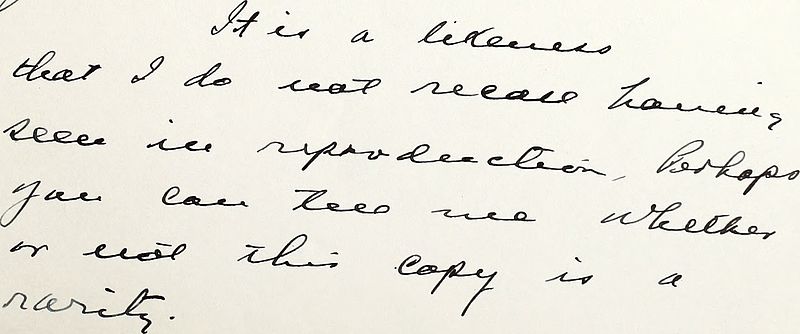 It is a likeness
that I do not recall having
seen in reproduction. Perhaps
you can tell me whether
or not this copy is a
rarity.